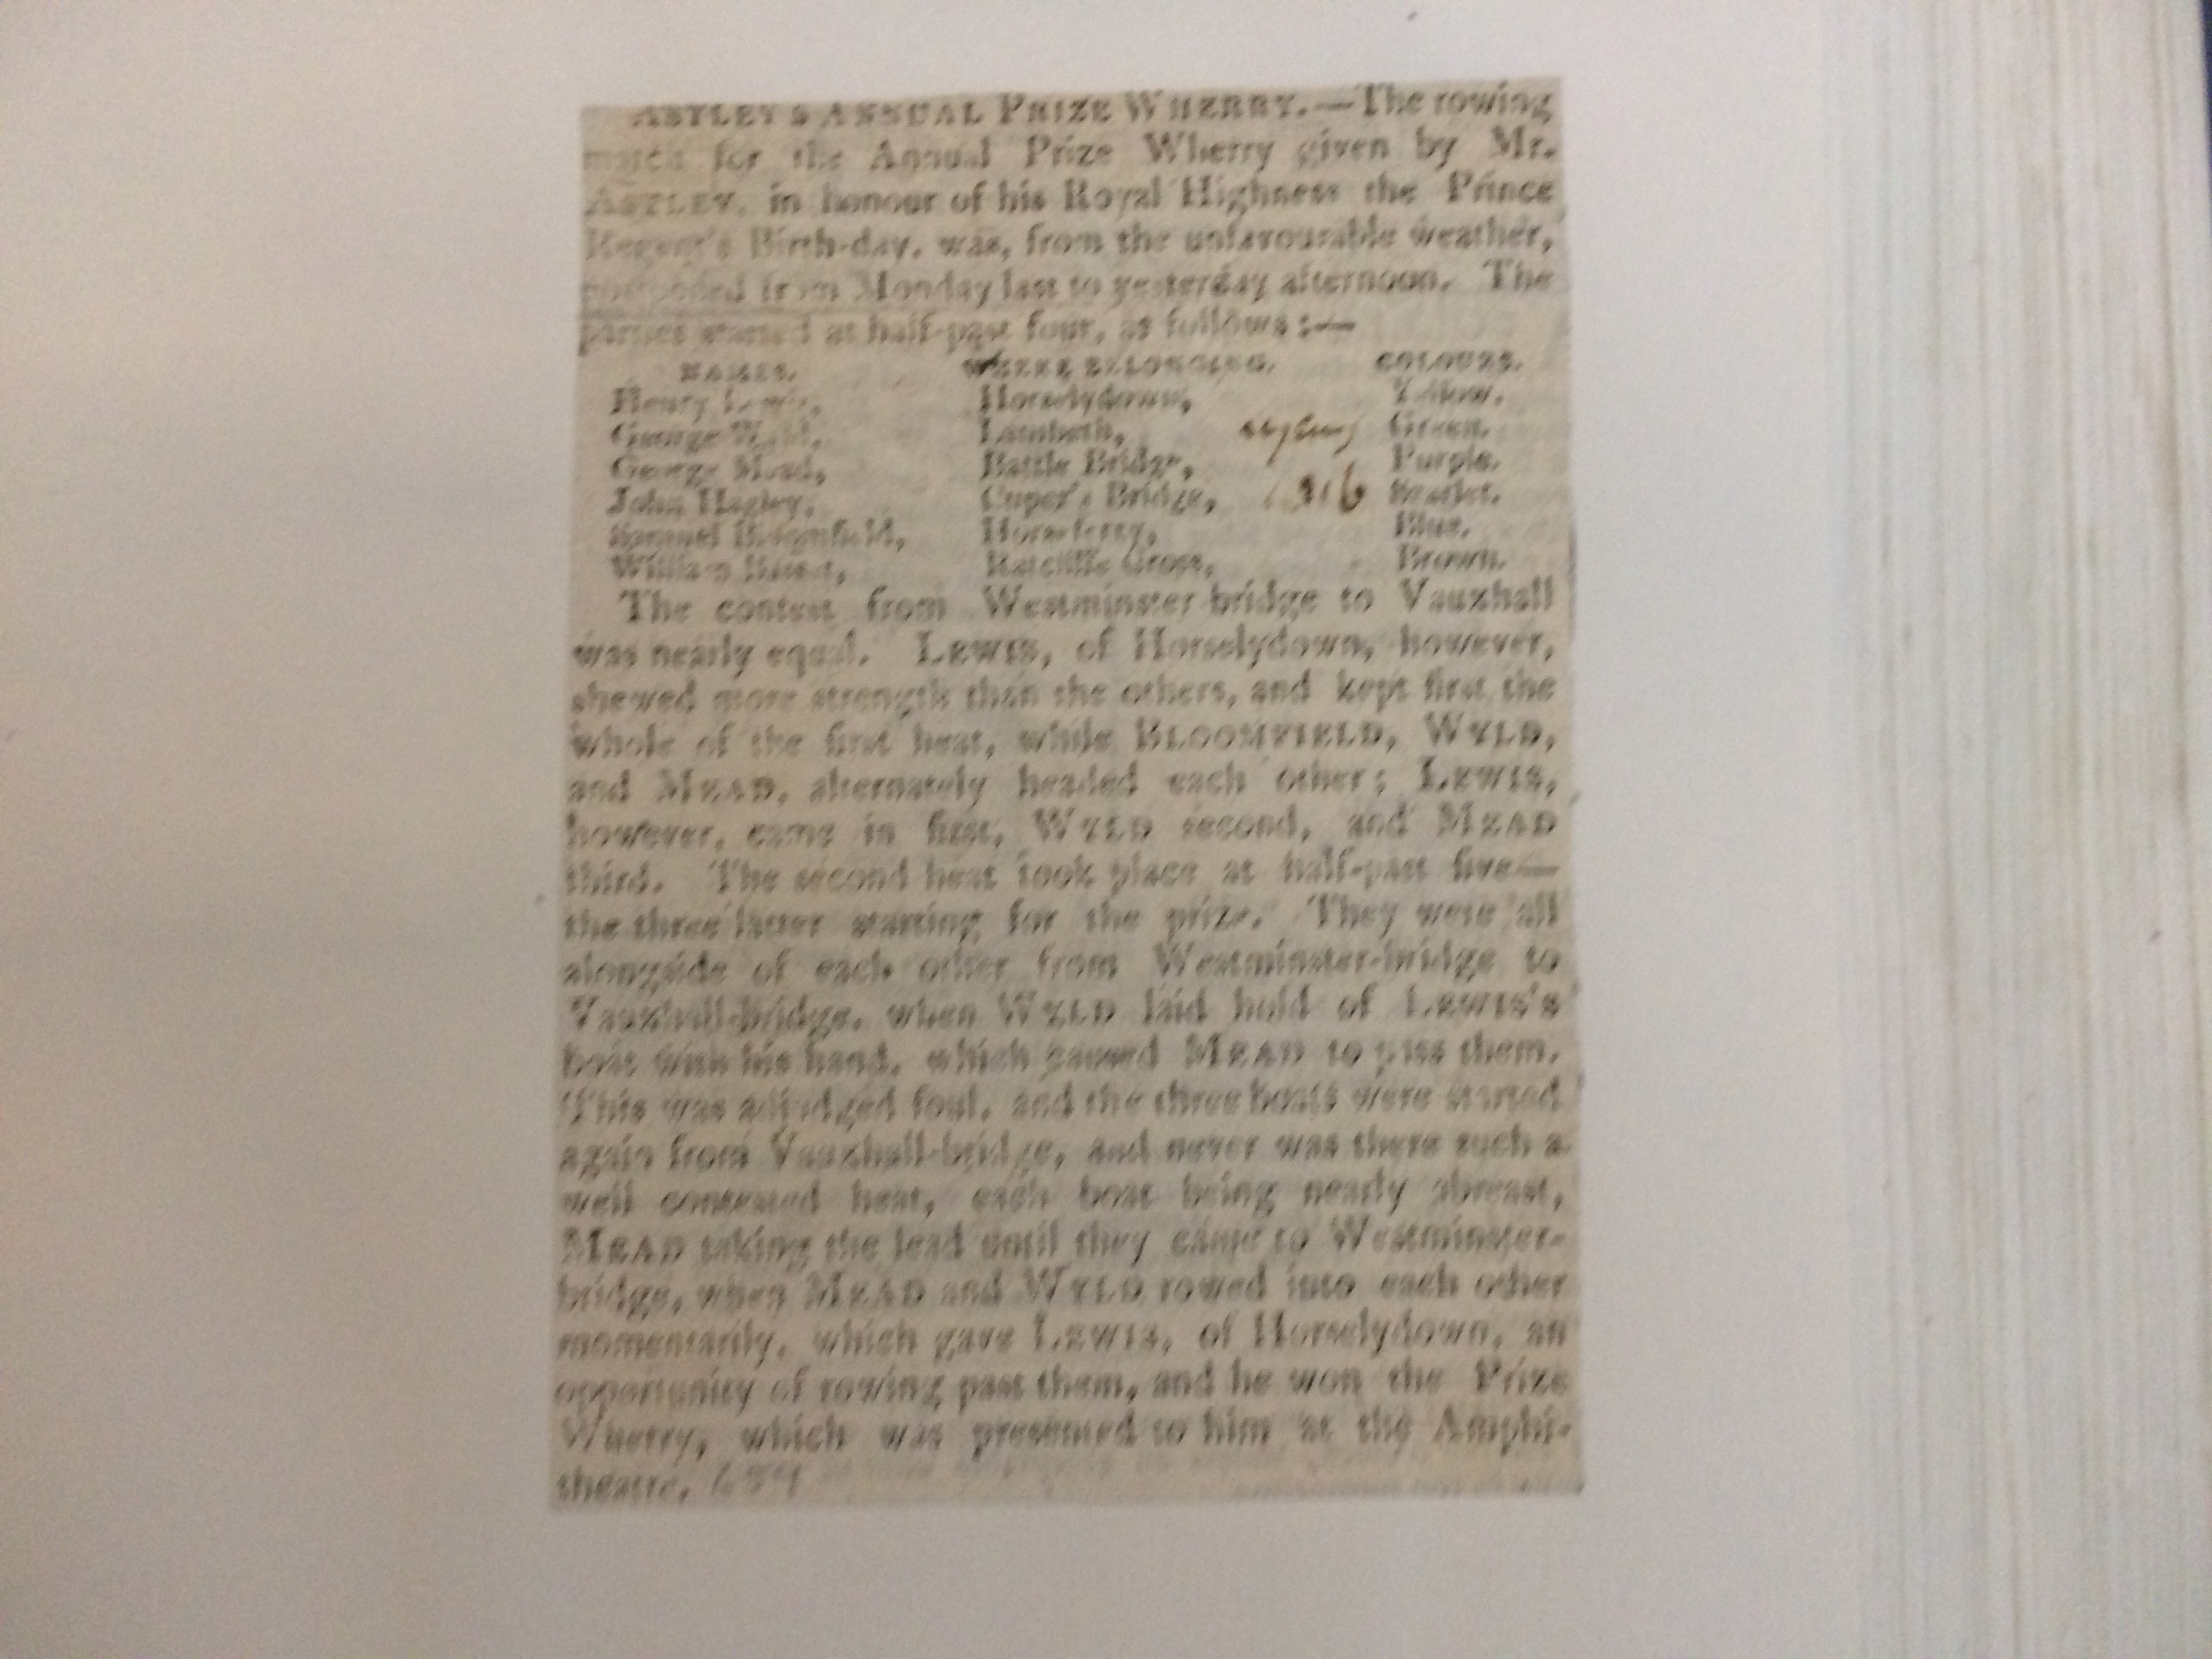 ASTLEY'S ANNUAL PRIZE WHERRY.—The rowing
match for the Annual Prize Wherry given by Mr.
ASTLEY, in honour of his Royal Highness the Prince
Regent's Birth-day, was, from the unfavourable weather,
postponed from Monday last to yesterday afternoon. The
parties started at half-past four, as follows:—
NAMES. WHERE BELONGING. COLOURS.
Henry Lewis, Horselydown, Yellow.
George Wyld, Lambeth, Green.
George Mead, Battle Bridge, Purple.
John Hagley, Cuper's Bridge, 1816 Scarlet.
Samuel Bloomfield, Horseferry, Blue.
William Ratcliffe Cross, Brown.
The contest from Westminster bridge to Vauxhall
was nearly equal. LEWIS, of Horselydown, however,
shewed more strength than the others, and kept first the
whole of the first heat, while BLOOMFIELD, WYLD,
and MEAD, alternately headed each other; LEWIS,
however, came in first, WYLD second, and MEAD
third. The second heat took place at half-past five—
the three latter starting for the prize. They were all
alongside of each other from Westminster-bridge to
Vauxhall-bridge, when WYLD laid hold of LEWIS'S
boat with his hand, which caused MEAD to pass them.
This was adjudged foul, and the three boats were started
again from Vauxhall-bridge, and never was there such a
well contested heat, each boat being nearly abreast,
MEAD taking the lead until they came to Westminster-
bridge, when MEAD and WYLD rowed into each other
momentarily, which gave LEWIS, of Horselydown, an
opportunity of rowing past them, and he won the Prize
Wherry, which was presented to him at the Amphi-
theatre.